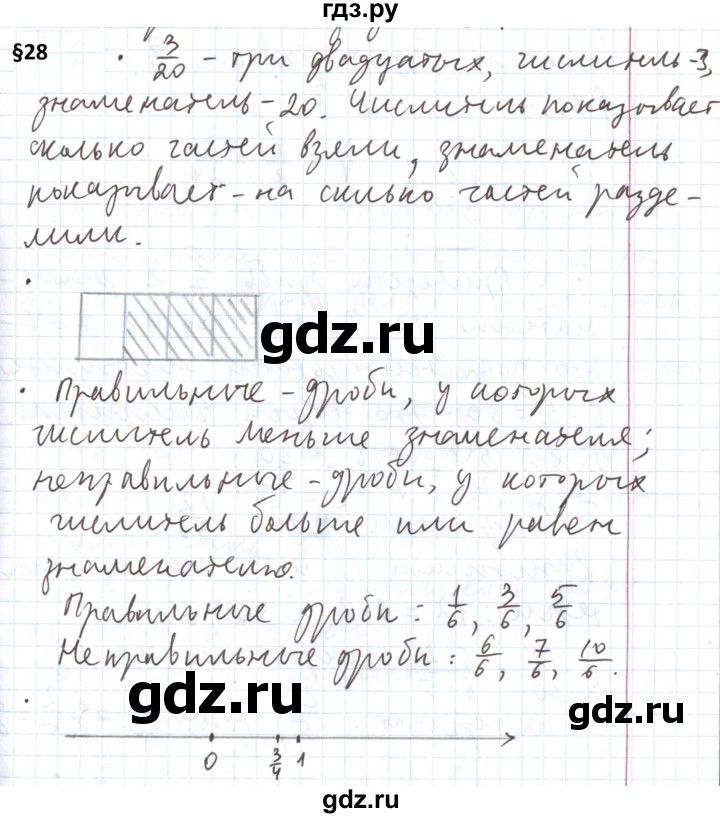 гдз.ру
§28
· 3/20 - три двадцатых, числитель-3,
знаменатель-20. Числитель показывает
сколько частей взяли, знаменатель
показывает - на сколько частей разде-
лили.
·
gdz.ru
· Правильные - дроби, у которых
числитель меньше знаменателя;
неправильные - дроби, у которых
числитель больше или равен
знаменателю.
Правильные дроби: 1/6, 3/6, 5/6
Неправильные дроби: 6/6, 7/6, 10/6.
gdz.ru
gdz.ru
·
0 3/4 1
gdz.ru